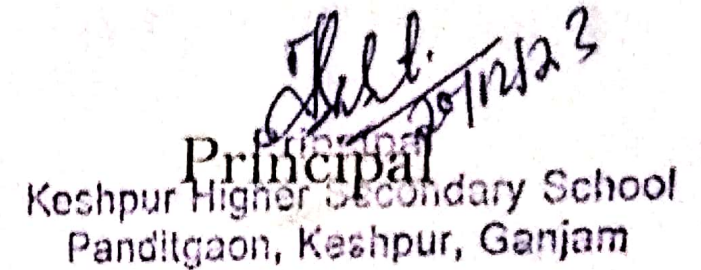 20/12/23
Principal
Principal
Keshpur Higher Secondary School
Panditgaon, Keshpur, Ganjam